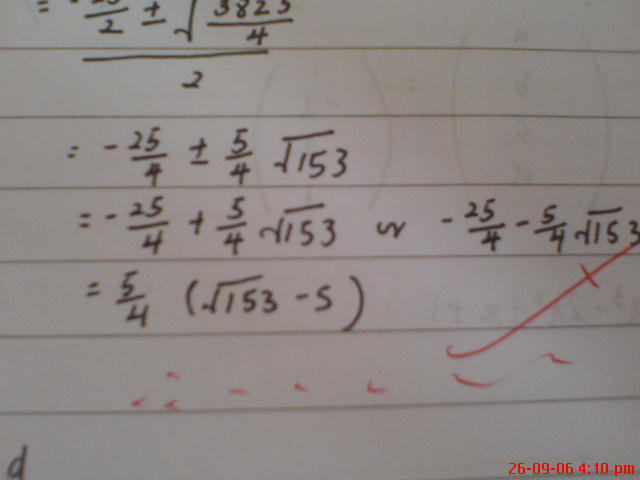 = -25/2 ± √(3825/4)
2
= -25/4 ± 5/4 √153
= -25/4 + 5/4 √153 or -25/4 - 5/4 √153
= 5/4 (√153 - 5)
d
26-09-06 4:10 pm